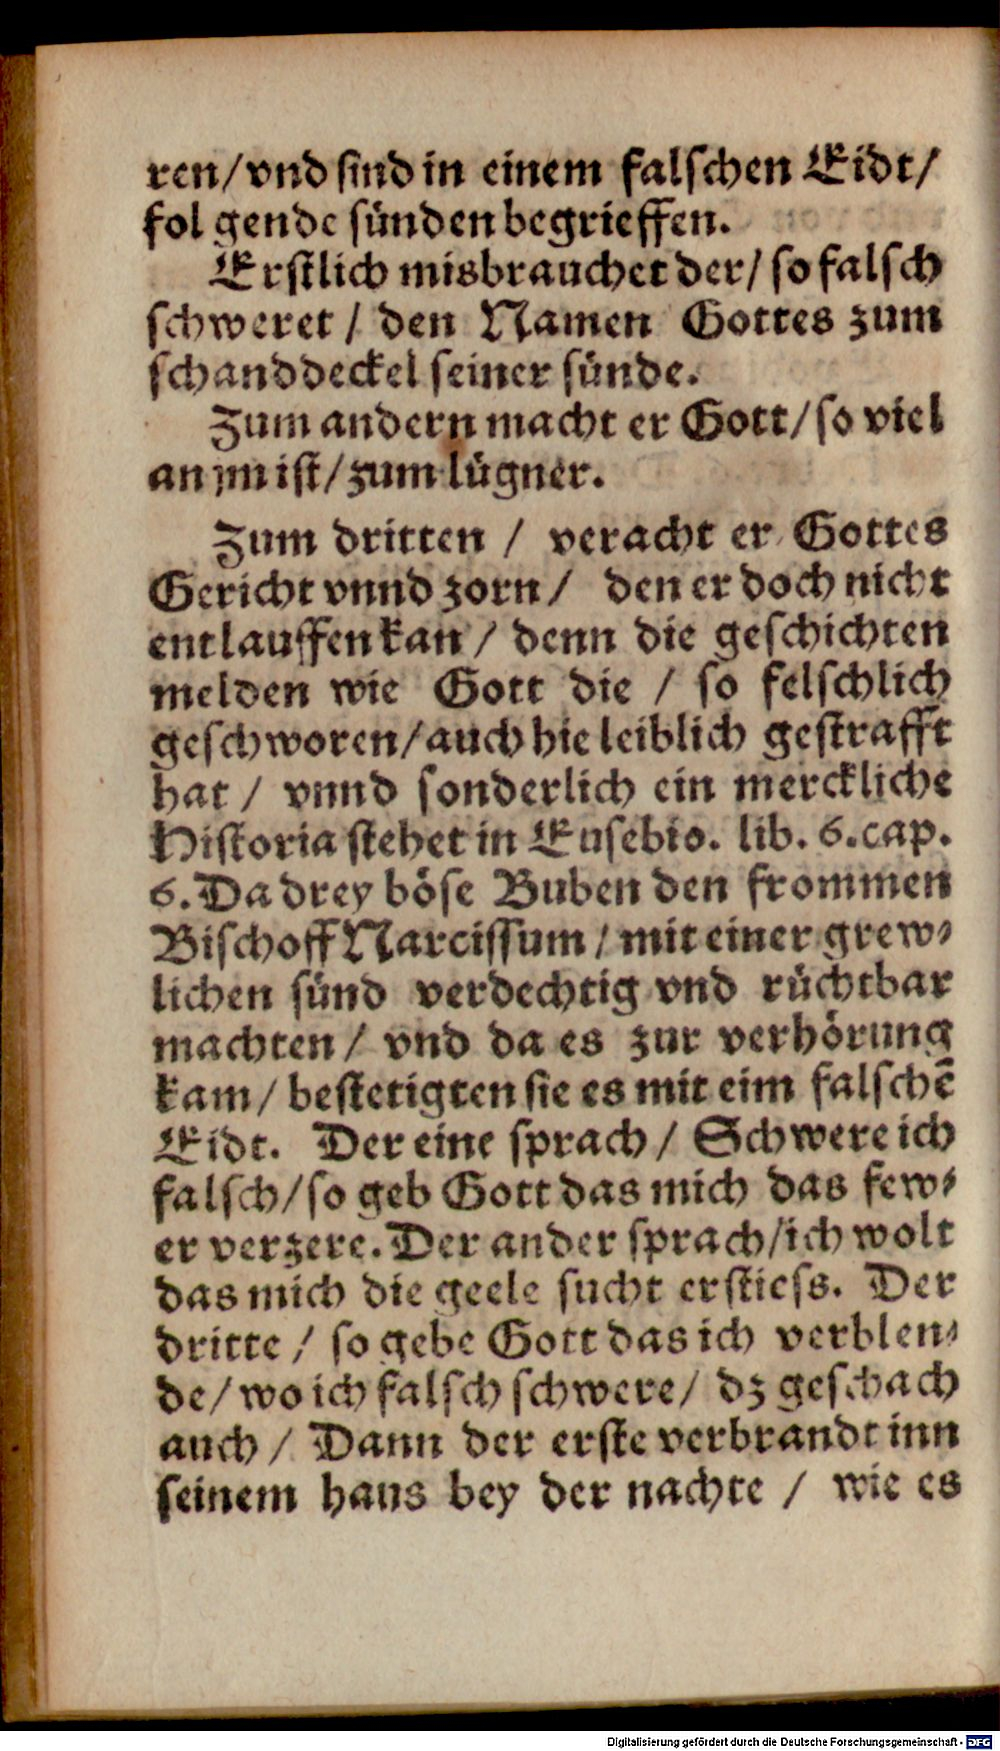 ren/ vnd sind in einem falschen Eidt/
folgende sünden begrieffen.
Erstlich misbrauchet der/ so falsch
schweret/ den Namen Gottes zum
schanddeckel seiner sünde.
Zum andern macht er Gott/ so viel
an jm ist/ zum lügner.
Zum dritten/ veracht er Gottes
Gericht vnnd zorn/ den er doch nicht
entlauffen kan/ denn die geschichten
melden wie Gott die/ so felschlich
geschworen/ auch hie leiblich gestrafft
hat/ vnnd sonderlich ein merckliche
Historia stehet in Eusebio. lib. 6. cap.
6. Da drey böse Buben den frommen
Bischoff Narcissum/ mit einer grew⸗
lichen sünd verdechtig vnd rüchtbar
machten/ vnd da es zur verhörung
kam/ bestetigten sie es mit eim falschẽ
Eidt. Der eine sprach/ Schwere ich
falsch/ so geb Gott das mich das few⸗
er verzere. Der ander sprach/ ich wolt
das mich die geele sucht erstiess. Der
dritte/ so gebe Gott das ich verblen⸗
de/ wo ich falsch schwere/ dz geschach
auch/ Dann der erste verbrandt inn
seinem haus bey der nachte/ wie es
Digitalisierung gefördert durch die Deutsche Forschungsgemeinschaft - DFG